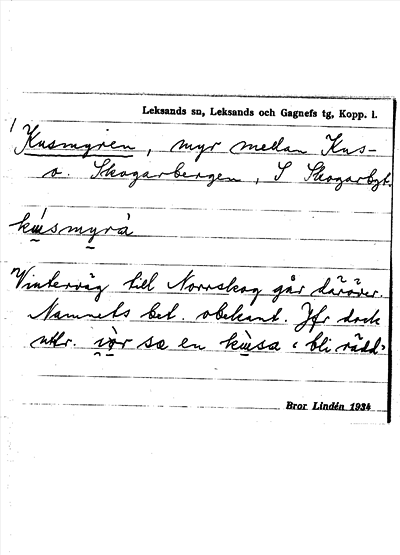 Leksands sn, Leksands och Gagnefs tg, Kopp. l.
1 Kusmyren, myr mellan Kus-
o. Skogarbergen, S Skogarbyt.
kùsmyrà
Vinterväg till Norrskog går däröver.
Namnets bet. obekant. Jfr dock
uttr. sæ en kùsa ‹bli rädd›
Bror Lindén 1934